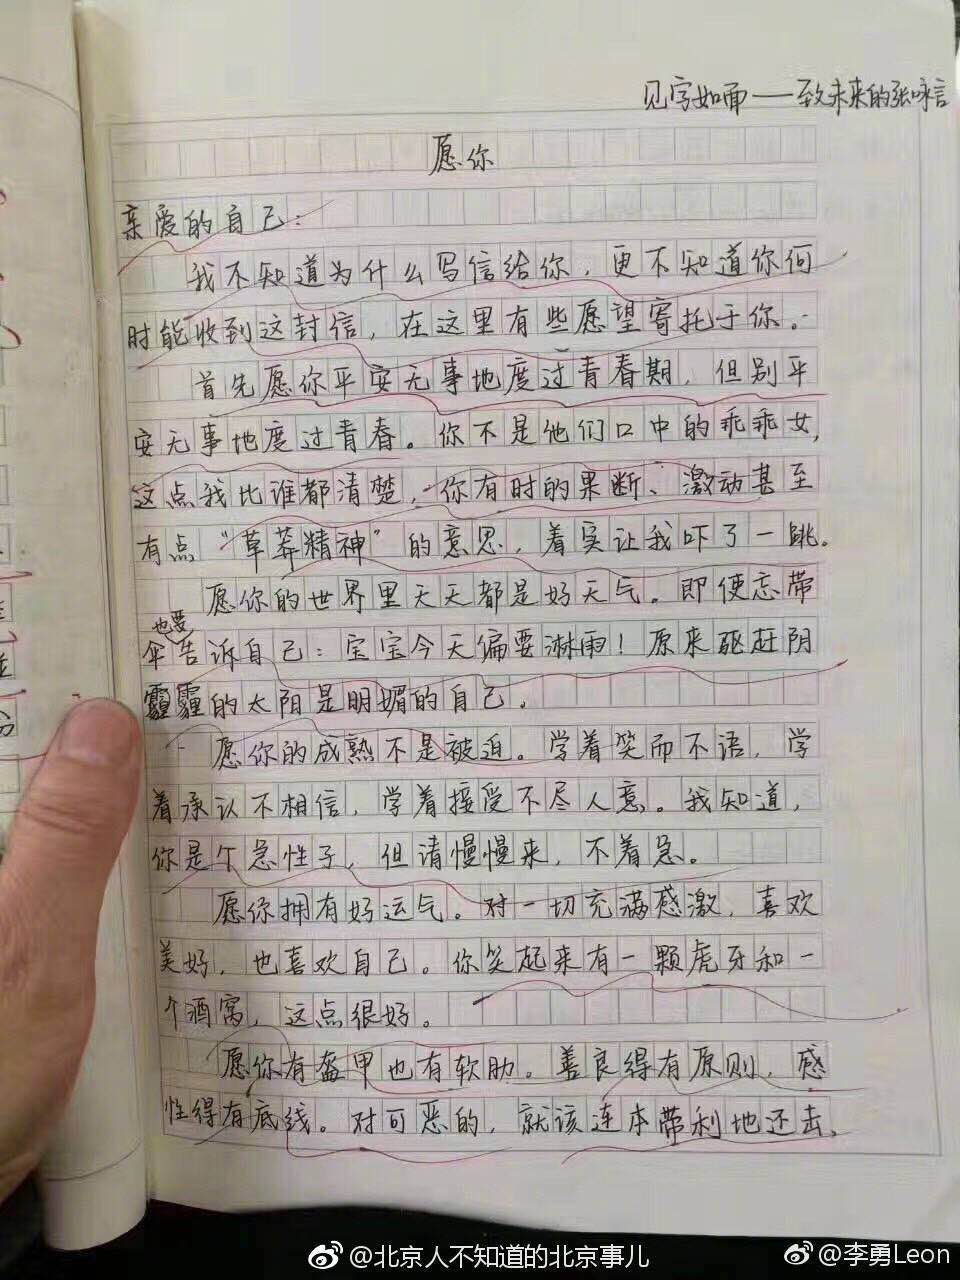 见字如面——致未来的张咏言
愿你
亲爱的自己：
我不知道为什么写信给你，更不知道你何
时能收到这封信，在这里有些愿望寄托于你。
首先愿你平安无事地度过青春期，但别平
安无事地度过青春。你不是他们口中的乖乖女，
这点我比谁都清楚，你有时的果断、激动甚至
有点“草莽精神”的意思，着实让我吓了一跳。
愿你的世界里天天都是好天气。即便忘带
伞也要告诉自己：宝宝今天偏要淋雨！原来驱赶阴
霾霾的太阳是明媚的自己。
愿你的成熟不是被迫。学着笑而不语，学
着承认不相信，学着接受不尽人意。我知道，
你是个急性子，但请慢慢来，不着急。
愿你拥有好运气。对一切充满感激，喜欢
美好，也喜欢自己。你笑起来有一颗虎牙和一
个酒窝，这点很好。
愿你有盔甲也有软肋。善良得有原则，感
性得有底线。对可恶的，就该连本带利地还去，
@北京人不知道的北京事儿
@李勇Leon